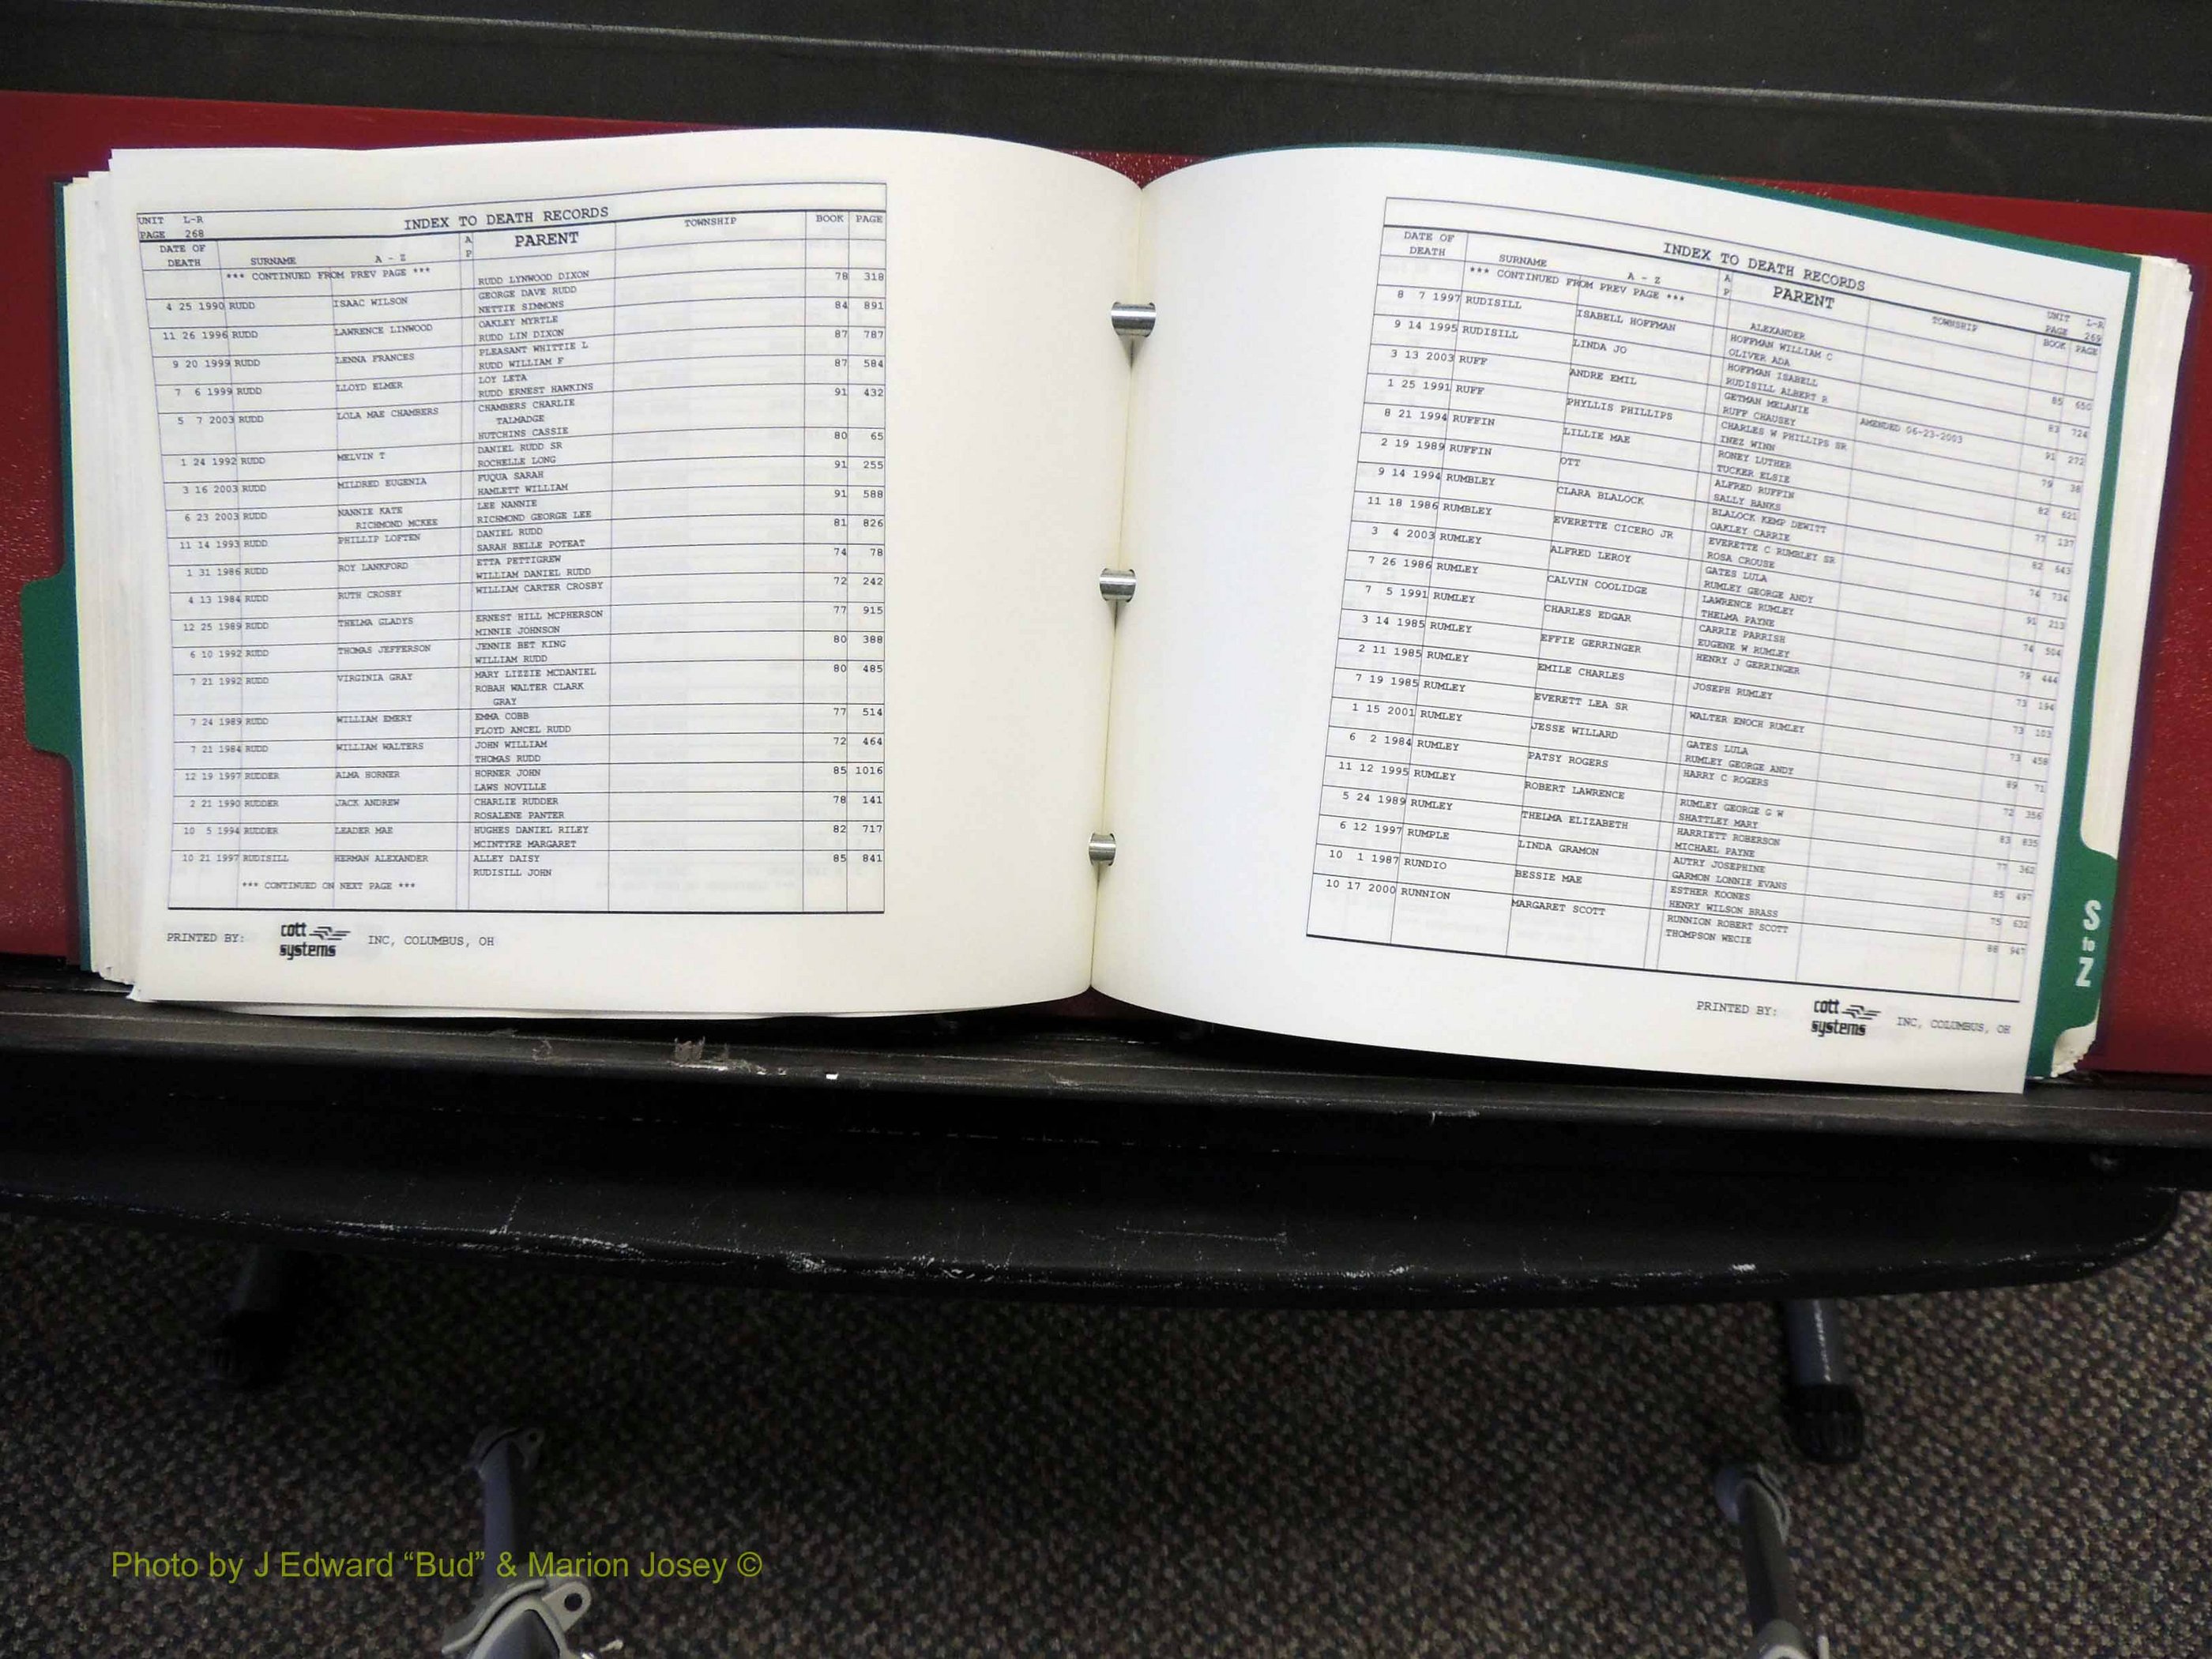 UNIT L-R INDEX TO DEATH RECORDS TOWNSHIP BOOK PAGE
PAGE 268
DATE OF DEATH SURNAME A - Z A P PARENT
*** CONTINUED FROM PREV PAGE *** RUDD LYNWOOD DIXON 78 318
4 25 1990 RUDD ISAAC WILSON GEORGE DAVE RUDD 84 891
NETTIE SIMMONS
11 26 1996 RUDD LAWRENCE LINWOOD OAKLEY MYRTLE 87 787
RUDD LIN DIXON
9 20 1999 RUDD LENNA FRANCES PLEASANT WHITTIE L 87 584
RUDD WILLIAM F
7 6 1999 RUDD LLOYD ELMER LOY LETA 91 432
RUDD ERNEST HAWKINS
5 7 2003 RUDD LOLA MAE CHAMBERS CHAMBERS CHARLIE
TALMADGE
HUTCHINS CASSIE 80 65
1 24 1992 RUDD MELVIN T DANIEL RUDD SR
ROCHELLE LONG 91 255
3 16 2003 RUDD MILDRED EUGENIA FUQUA SARAH
HAMLETT WILLIAM 91 588
6 23 2003 RUDD NANNIE KATE LEE NANNIE
RICHMOND MCKEE RICHMOND GEORGE LEE 81 826
11 14 1993 RUDD PHILLIP LOFTEN DANIEL RUDD
SARAH BELLE POTEAT 74 78
1 31 1986 RUDD ROY LANKFORD ETTA PETTIGREW
WILLIAM DANIEL RUDD 72 242
4 13 1984 RUDD RUTH CROSBY WILLIAM CARTER CROSBY
77 915
12 25 1989 RUDD THELMA GLADYS ERNEST HILL MCPHERSON
MINNIE JOHNSON 80 388
6 10 1992 RUDD THOMAS JEFFERSON JENNIE BET KING
WILLIAM RUDD 80 485
7 21 1992 RUDD VIRGINIA GRAY MARY LIZZIE MCDANIEL
ROBAH WALTER CLARK
GRAY
7 24 1989 RUDD WILLIAM EMERY EMMA COBB 77 514
FLOYD ANCEL RUDD
7 21 1984 RUDD WILLIAM WALTERS JOHN WILLIAM 72 464
THOMAS RUDD
12 19 1997 RUDDER ALMA HORNER HORNER JOHN 85 1016
LAWS NOVILLE
2 21 1990 RUDDER JACK ANDREW CHARLIE RUDDER 78 141
ROSALENE PANTER
10 5 1994 RUDDER LEADER MAE HUGHES DANIEL RILEY 82 717
MCINTYRE MARGARET
10 21 1997 RUDISILL HERMAN ALEXANDER ALLEY DAISY 85 841
RUDISILL JOHN
*** CONTINUED ON NEXT PAGE ***
PRINTED BY: cott systems INC, COLUMBUS, OH
INDEX TO DEATH RECORDS UNIT L-R
PAGE 269
DATE OF DEATH SURNAME A - Z A P PARENT TOWNSHIP BOOK PAGE
*** CONTINUED FROM PREV PAGE *** ALEXANDER
8 7 1997 RUDISILL ISABELL HOFFMAN HOFFMAN WILLIAM C 85 650
OLIVER ADA
9 14 1995 RUDISILL LINDA JO HOFFMAN ISABELL 83 724
RUDISILL ALBERT R
3 13 2003 RUFF ANDRE EMIL GETMAN MELANIE AMENDED 06-23-2003 91 272
RUFF CHAUSEY
1 25 1991 RUFF PHYLLIS PHILLIPS CHARLES W PHILLIPS SR 79 38
INEZ WINN
8 21 1994 RUFFIN LILLIE MAE RONEY LUTHER 82 621
TUCKER ELSIE
2 19 1989 RUFFIN OTT ALFRED RUFFIN 77 137
SALLY BANKS
9 14 1994 RUMBLEY CLARA BLALOCK BLALOCK KEMP DEWITT 82 643
OAKLEY CARRIE
11 18 1986 RUMBLEY EVERETTE CICERO JR EVERETTE C RUMBLEY SR 74 734
ROSA CROUSE
3 4 2003 RUMLEY ALFRED LEROY GATES LULA 91 213
RUMLEY GEORGE ANDY
7 26 1986 RUMLEY CALVIN COOLIDGE LAWRENCE RUMLEY 74 504
THELMA PAYNE
7 5 1991 RUMLEY CHARLES EDGAR CARRIE PARRISH 79 444
EUGENE W RUMLEY
3 14 1985 RUMLEY EFFIE GERRINGER HENRY J GERRINGER 73 194
2 11 1985 RUMLEY EMILE CHARLES JOSEPH RUMLEY 73 103
7 19 1985 RUMLEY EVERETT LEA SR WALTER ENOCH RUMLEY 73 458
1 15 2001 RUMLEY JESSE WILLARD GATES LULA 89 71
RUMLEY GEORGE ANDY
6 2 1984 RUMLEY PATSY ROGERS HARRY C ROGERS 72 356
11 12 1995 RUMLEY ROBERT LAWRENCE RUMLEY GEORGE G W 83 835
SHATTLEY MARY
5 24 1989 RUMLEY THELMA ELIZABETH HARRIETT ROBERSON 77 362
MICHAEL PAYNE
6 12 1997 RUMPLE LINDA GRAMON AUTRY JOSEPHINE 85 497
GARMON LONNIE EVANS
10 1 1987 RUNDIO BESSIE MAE ESTHER KOONES 75 632
HENRY WILSON BRASS
10 17 2000 RUNNION MARGARET SCOTT RUNNION ROBERT SCOTT 88 947
THOMPSON WECIE
PRINTED BY: cott systems INC, COLUMBUS, OH
S to Z
Photo by J Edward “Bud” & Marion Josey ©